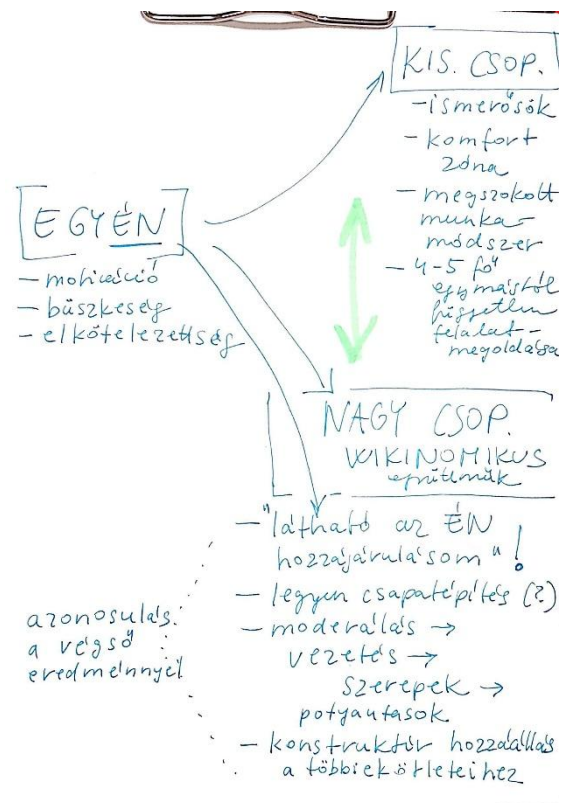 KIS. CSOP.
-ismerősök
- komfort
zóna
- megszokott
munka-
módszer
- 4-5 fő
egymástól
független
felalat-
megoldása
EGYÉN
- motiváció
- büszkeség
- elkötelezettség
NAGY CSOP.
WIKINOMIKUS
együttműk
- "látható az ÉN
hozzájárulásom"!
- legyen csapatépítés (?)
- moderálás →
vezetés →
szerepek →
potyautasok.
- konstruktív hozzáállás
a többiek ötleteihez
azonosulás
a végső
eredménnyel